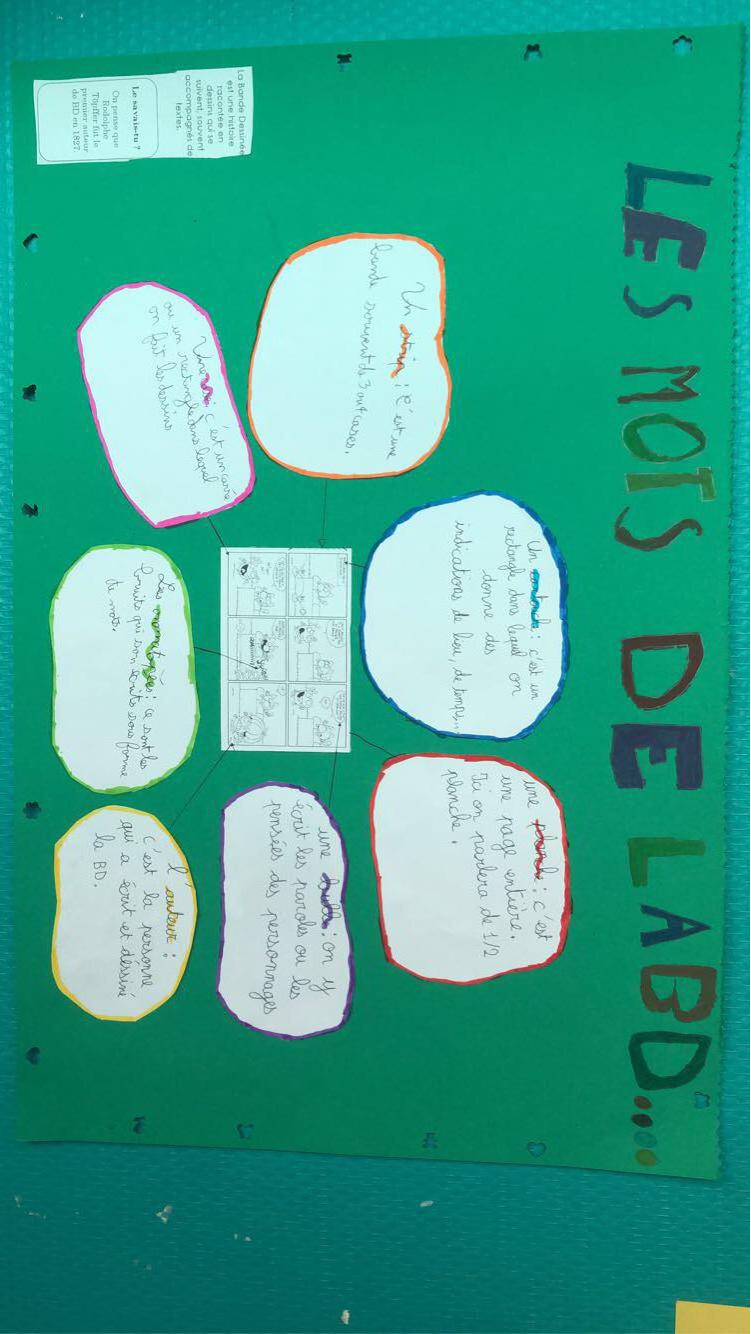 LES MOTS DE LA BD...
Un strip : C'est une
bande souvent de 3 ou 4 cases.
Un cartouche : c'est un
rectangle dans lequel on
donne des
indications de lieu, de temps...
une planche : c'est
une page entière.
Ici on parlera de 1/2
planche.
Une case c'est un carré
ou un rectangle dans lequel
on fait les dessins
Les onomatopées : Ce sont les
bruits qui son écrits sous forme
de mots.
une bulle : on y
écrit les paroles ou les
pensées des personnages
l'auteur :
C'est la personne
qui a écrit et déssiné
la BD.
La Bande Dessinée
est une histoire
racontée en
dessins qui se
suivent, souvent
accompagnés de
textes.
Le savais-tu ?
On pense que
Rodolphe
Töpffer fut le
premier auteur
de BD en 1827.